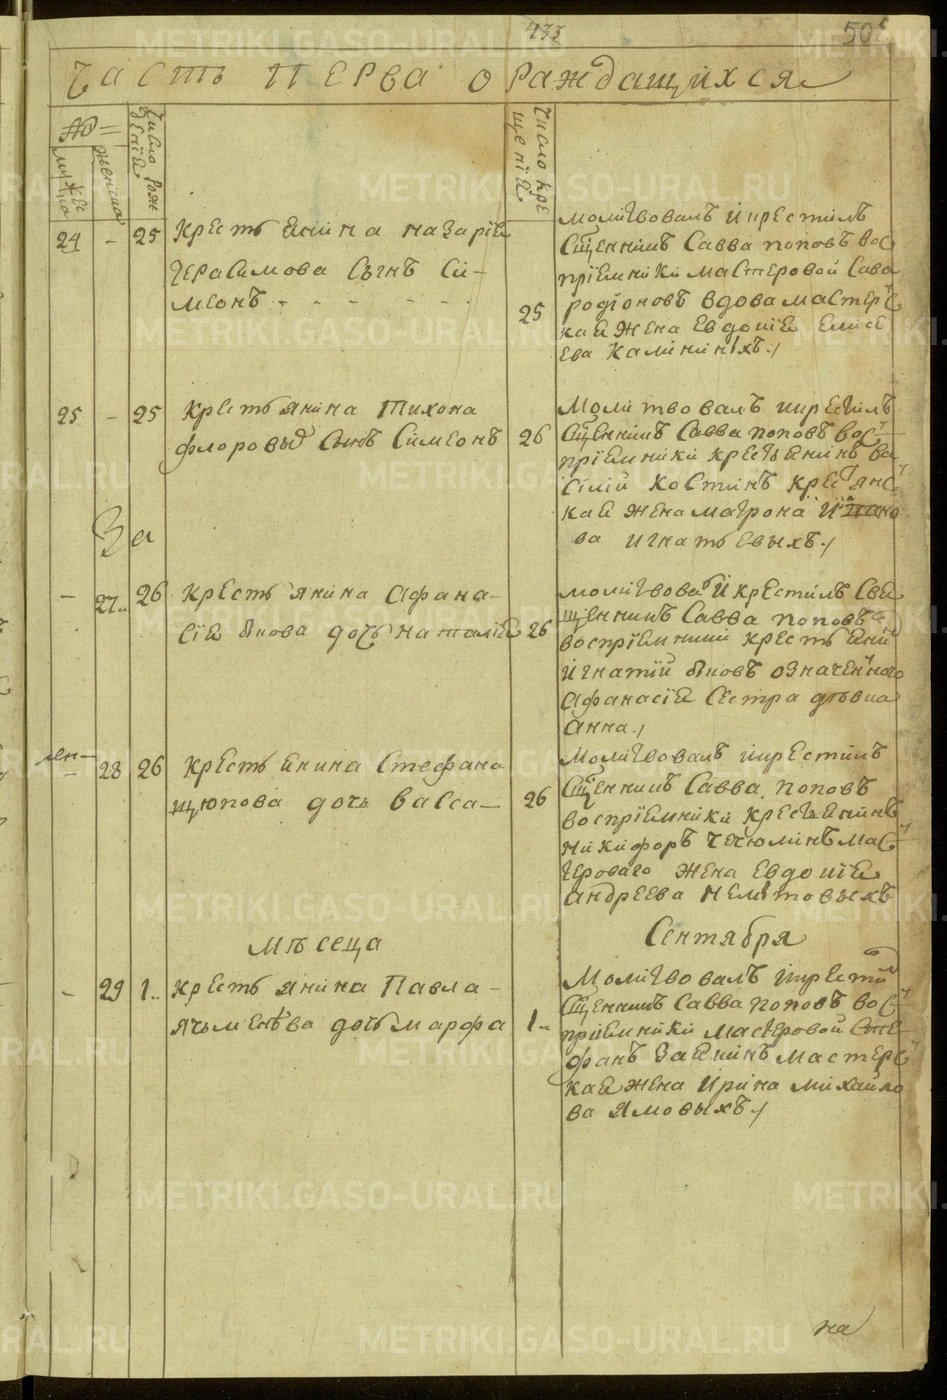 433
50
Часть перва о раждащихся
№
мужеска
женска
число рождения
число крещения
24 - 25 Крестьянина Назарiя
Герасимова сынъ Си-
меонъ
25
молитвовалъ и крестилъ
Сщенникъ Савва поповъ вос
прiемники мастеровой Сава
родiоновъ вдова мастерс
кая жена Евдокiя Елисе
ева Калининыхъ
25 - 25 Крестьянина Тихона
флоровых сынъ Симеонъ
26
Молитвовалъ и крестилъ
Сщенникъ Савва поповъ вос
прiемники крестьянинъ ва
сiлiй Костинъ крестьянс
кая жена матрона
ва игнатьевыхъ
За
- 27 26 Крестьянина Афана-
сiя дочь наталiя
26
молитвова и крестилъ Свя
щенникъ Савва поповъ
воспрiемники крестьяни
игнатiй означенного
Афанасiя сестра девка
анна
28 26 Крестьянина Стефана
щюпова дочь васса
26
Молитвовалъ и крестилъ
Сщенникъ Савва поповъ
воспрiемники крестьянинъ
никифоръ мас
терового жена Евдокiя
андреева
Мѣсеца Сентября
- 29 1 Крестьянина Павла
Ячьменева дочь марфа
1
Молитвовалъ и крести
Сщенникъ Савва поповъ вос
прiемники мастеровой Сте
фанъ мастерс
кая жена Ирина михайло
ва Ямовыхъ
на
METRIKI.GASO-URAL.RU